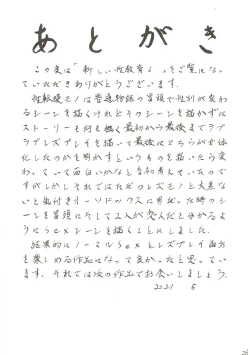 あとがき
この度は「新しい性教育6」をご覧になっ
ていただきありがとうございます.
性転換モノは普通物語の冒頭で性別が変わ
るシーンを描くけれどそのシーンを描かずに
ストーリーを何も無く最初から最後までラブ
ラブレズプレイを描いて最後にどちらが女体
化したのかを明かすというものを描いたら変
わっていて面白いかなと当初考えていたので
すがしかしそれではただのレズモノと大差な
いと気付きオーソドックスに男だった時のシ
ーンを冒頭にそして2人が恋人だと分かるよ
うにsexシーンを描くことにしました.
結果的にノーマルsexとレズプレイ両方
を楽しめる作品になって良かったと思ってい
ます. それでは次の作品でお会いしましょう.
2021 5
26